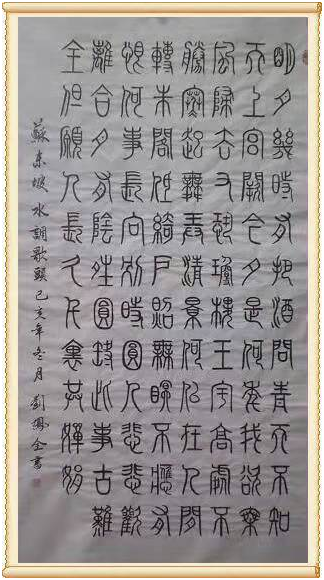 明月幾時有把酒問青天不知
天上宮闕今夕是何年我欲乘
風歸去又恐瓊樓玉宇高處不
勝寒起舞弄清景何似在人間
轉朱閣低綺戶照無眠不應有
恨何事長向別時圓人悲歡
離合月有陰晴圓缺此事古難
全但願人長久千裏共嬋娟
蘇東坡水調歌頭己亥年冬月劉鳳全書